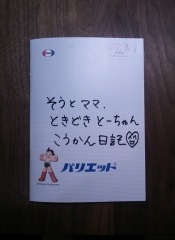 そうとママ、
ときどきとーちゃん
こうかん日記
パリエット